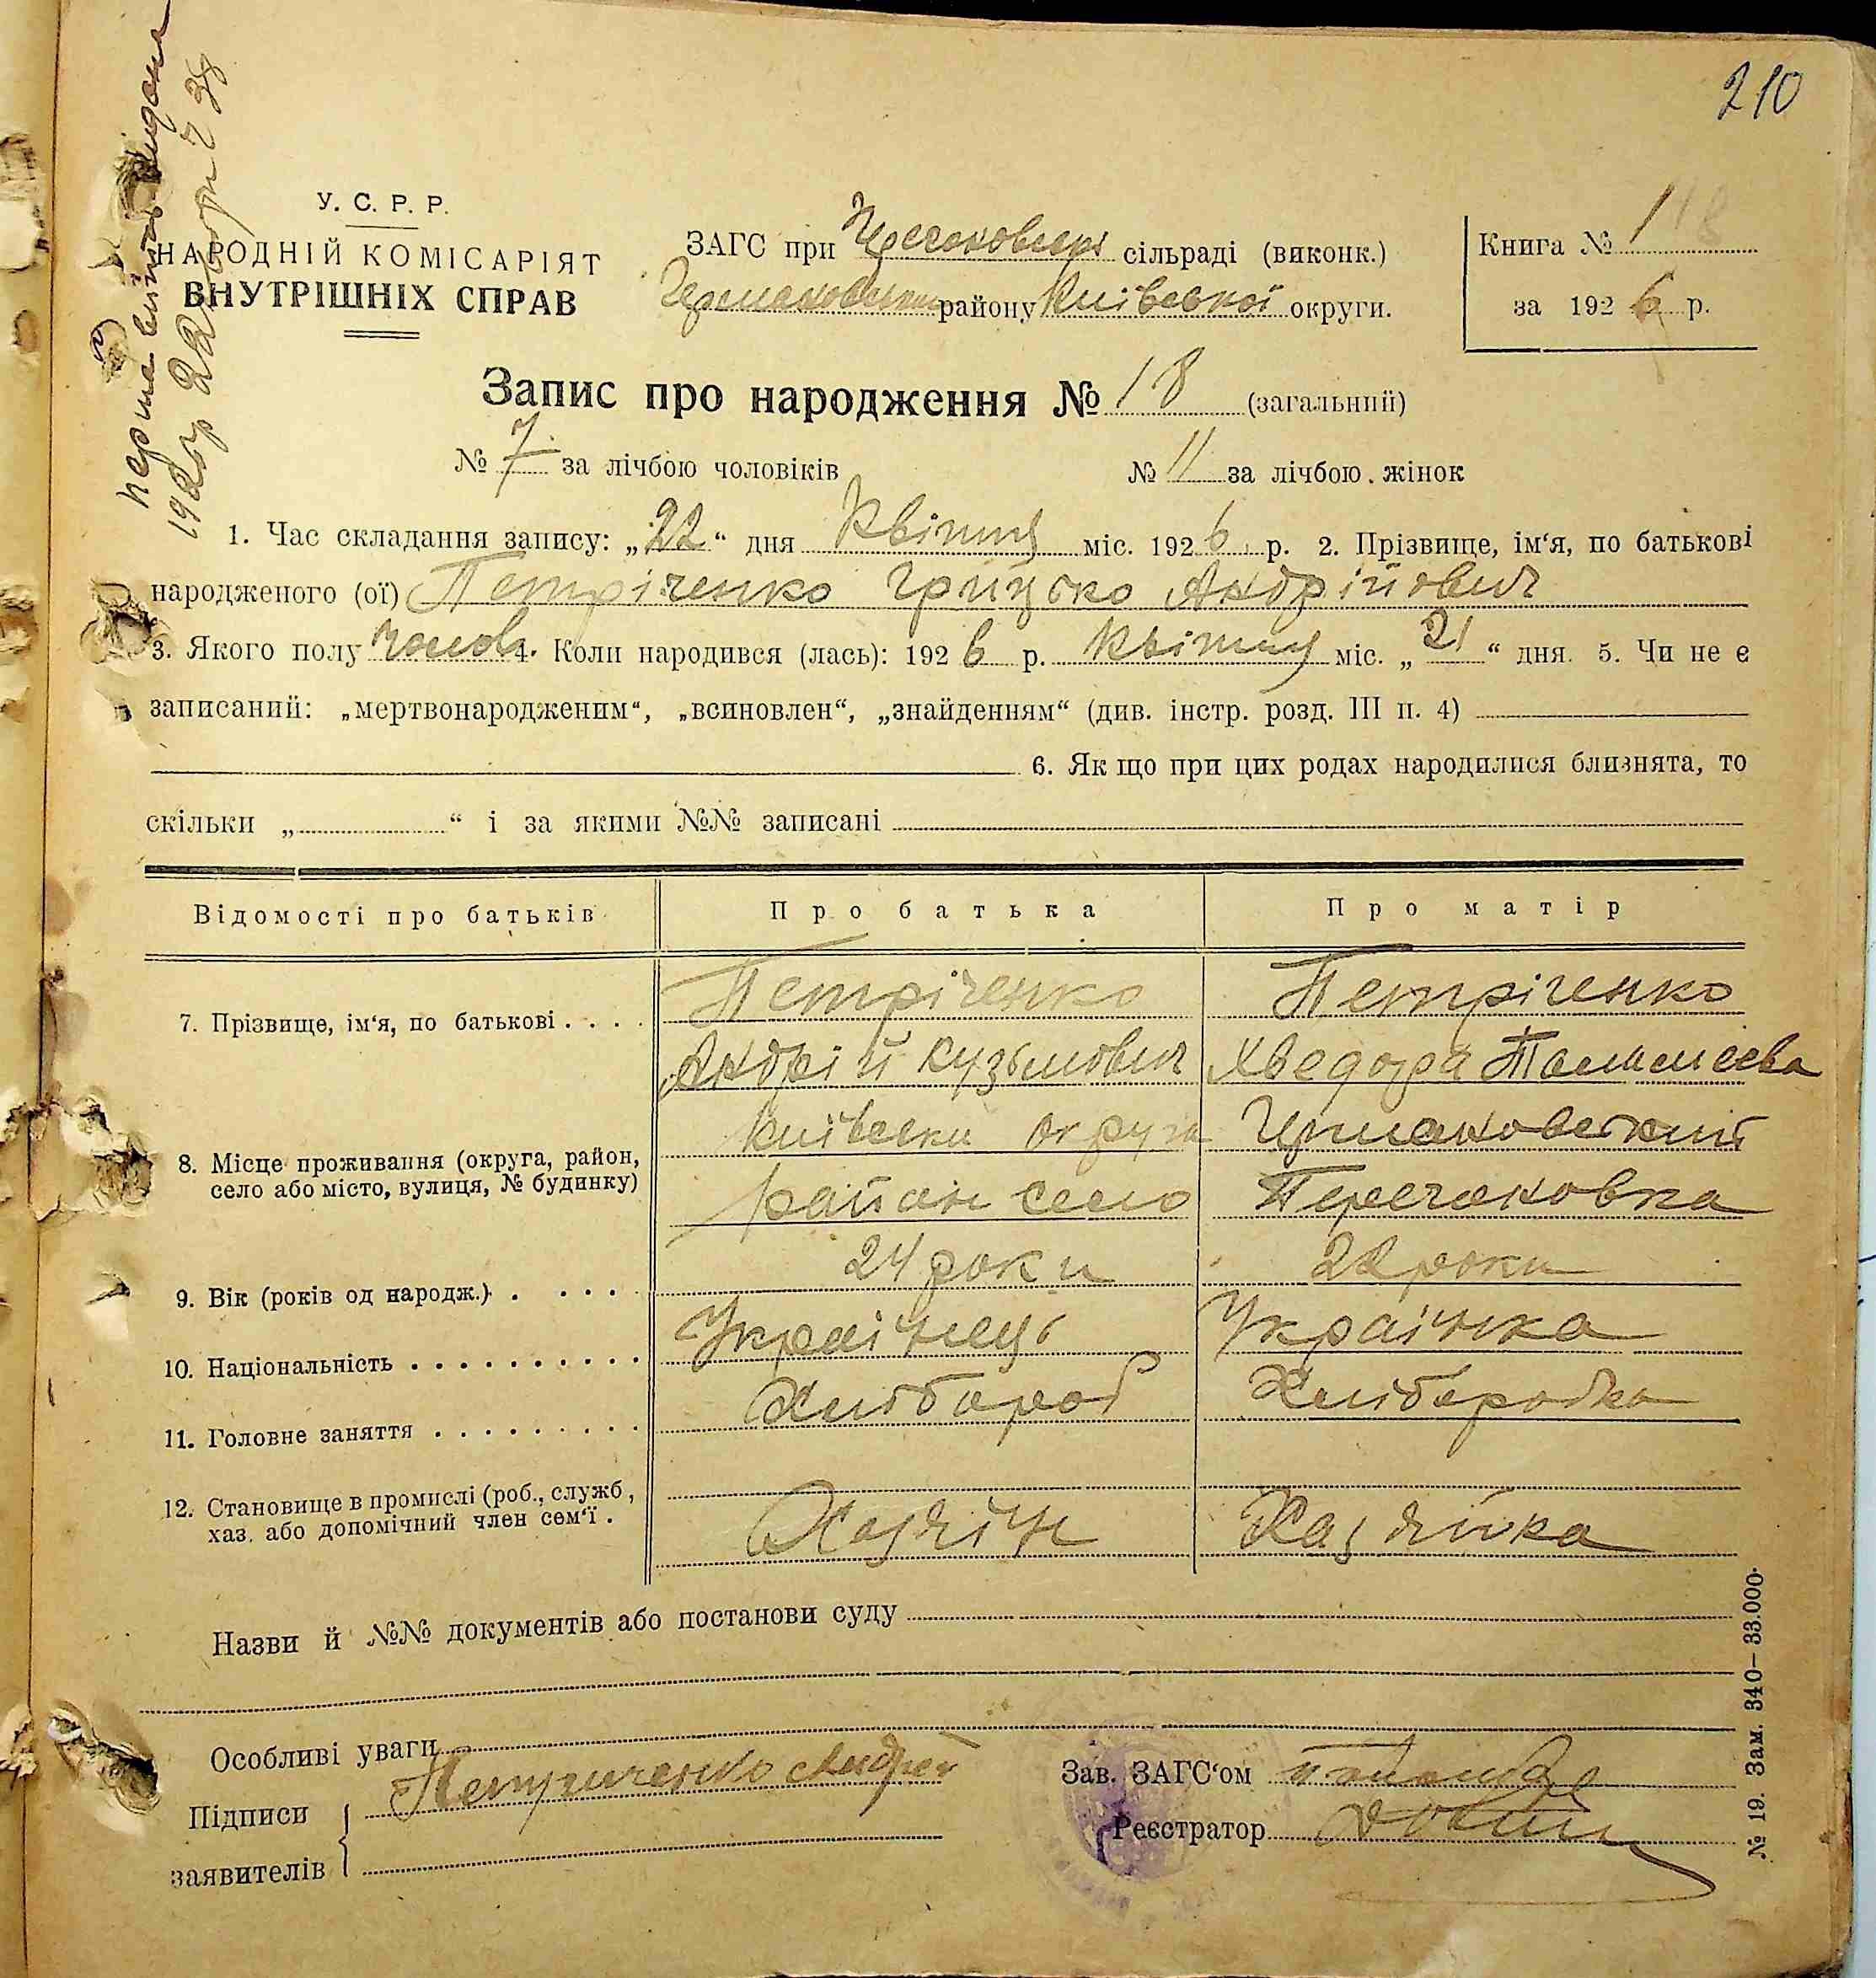 210
У. С. Р. Р.
НАРОДНІЙ КОМІСАРІЯТ
ВНУТРІШНІХ СПРАВ
ЗАГС при сільраді (виконк.)
району Київської округи.
Книга № 1
за 1926 р.
Запис про народження № 18 (загальний)
№ 7 за лічбою чоловіків № 11 за лічбою жінок
1. Час складання запису: „22“ дня Квітня міс. 1926 р. 2. Прізвище, ім‘я, по батькові
народженого (ої) Петріченко Грицько Андрійович
3. Якого полу чолов. 4. Коли народився (лась): 1926 р. Квітня міс. „21“ дня. 5. Чи не є
записаний: „мертвонародженим“, „всиновлен“, „знайденням“ (див. інстр. розд. III п. 4)
6. Як що при цих родах народилися близнята, то
скільки „ “ і за якими №№ записані
Відомості про батьків Про батька Про матір
7. Прізвище, ім‘я, по батькові . . . . Петріченко Петріченко
Андрій Кузьмович Хведора
8. Місце проживання (округа, район, село або місто, вулиця, № будинку) Київська округа
район село
9. Вік (років од народж.) . . . . . 24 роки 22 роки
10. Національність . . . . . . . . . . Українець Українка
11. Головне заняття . . . . . . . . . Хлібороб Хліборобка
12. Становище в промислі (роб., служб, хаз. або допомічний член сем‘ї . Хазяїн Хазяйка
Назви й №№ документів або постанови суду
Особливі уваги
Підписи заявителів Петриченко Андрей
Зав. ЗАГС‘ом
Реєстратор
№ 19. Зам. 340—33.000.